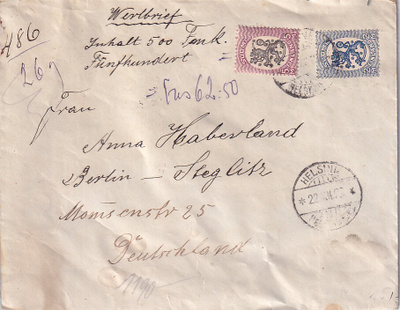 Wertbrief
486
Inhalt 500 Fmk.
Fünfhundert
269
= Frcs 62:50
Frau
Anna Haberland
Berlin – Steglitz
Momsenstr 25
Deutschland
1190
HELSINKI